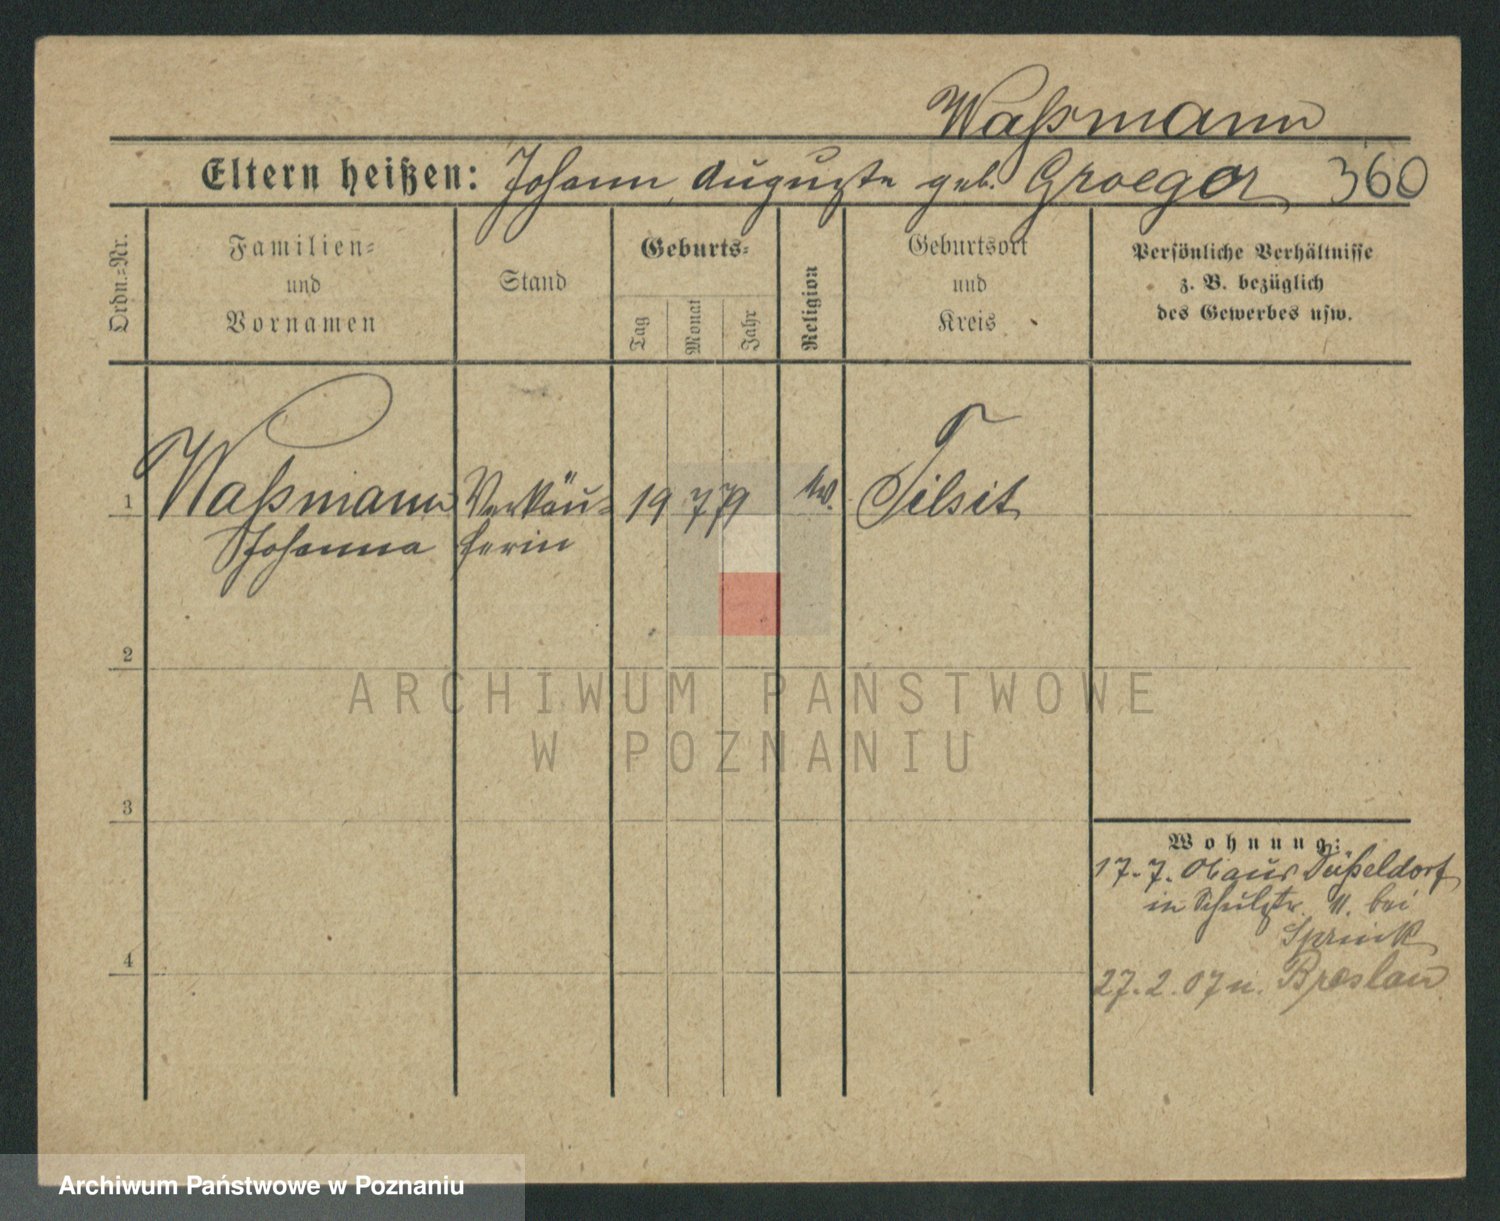 Waßmann
Eltern heißen: Johann, Auguste geb. Groeger 360
Ordn.=Nr.
Familien=
und
Vornamen
Stand
Geburts=
Tag
Monat
Jahr
Religion
Geburtsort
und
Kreis
Persönliche Verhältnisse
z. B. bezüglich
des Gewerbes usw.
1 Waßmann Verkäu= 19 7 79 Tilsit
Johanna ferin
2
3
4
Wohnung:
17.7. 06 aus Düßeldorf
in Schulstr. 11. bei
27.2.07 n. Breslau
ARCHIWUM PAŃSTWOWE
W POZNANIU
Archiwum Państwowe w Poznaniu